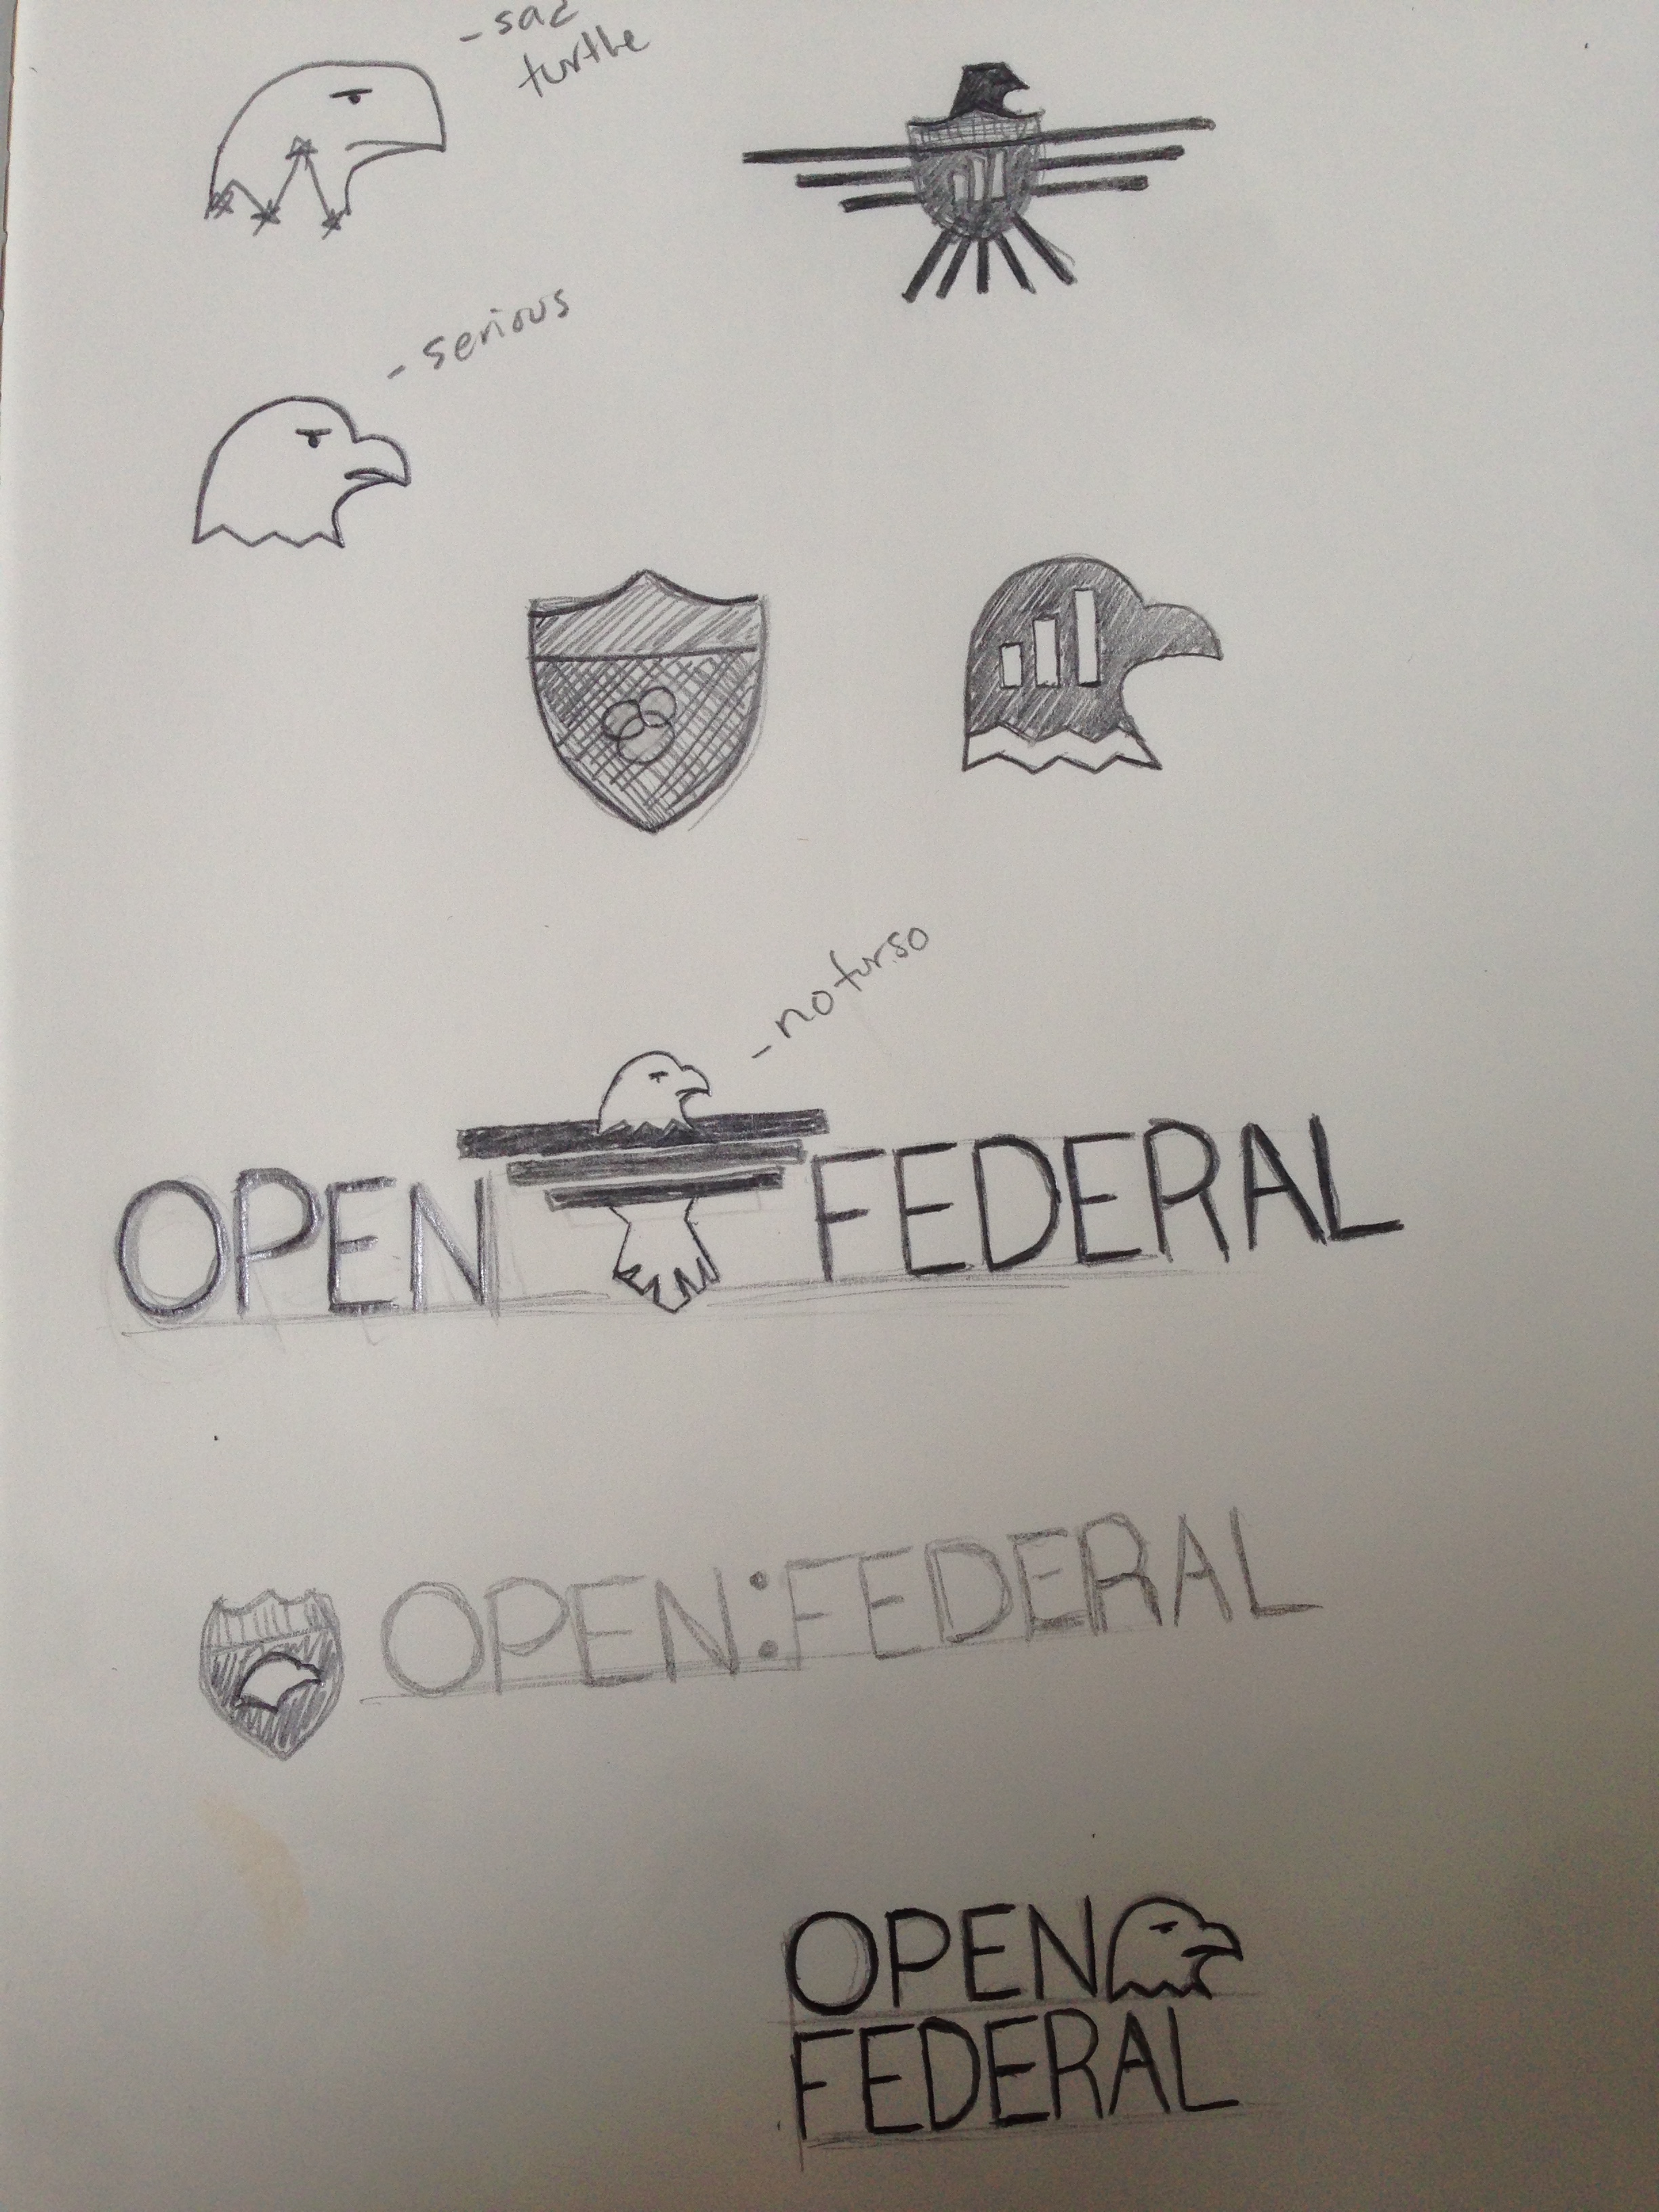 - sad
turtle
- serious
- no turso
OPEN FEDERAL
OPEN:FEDERAL
OPEN
FEDERAL